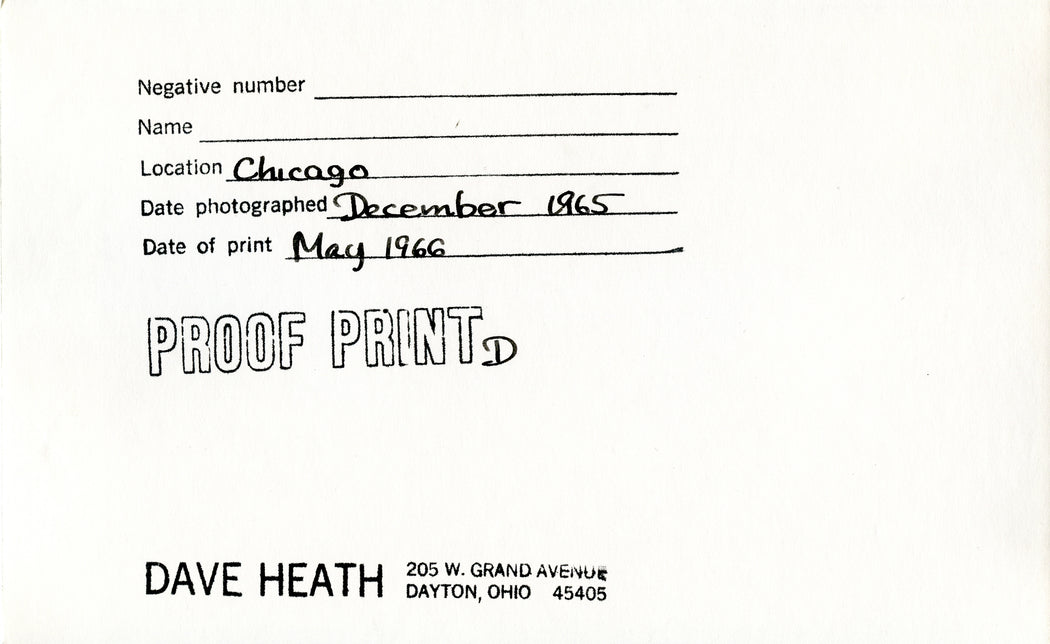 Negative number
Name
Location Chicago
Date photographed December 1965
Date of print May 1966
PROOF PRINT D
DAVE HEATH 205 W. GRAND AVENUE
DAYTON, OHIO 45405